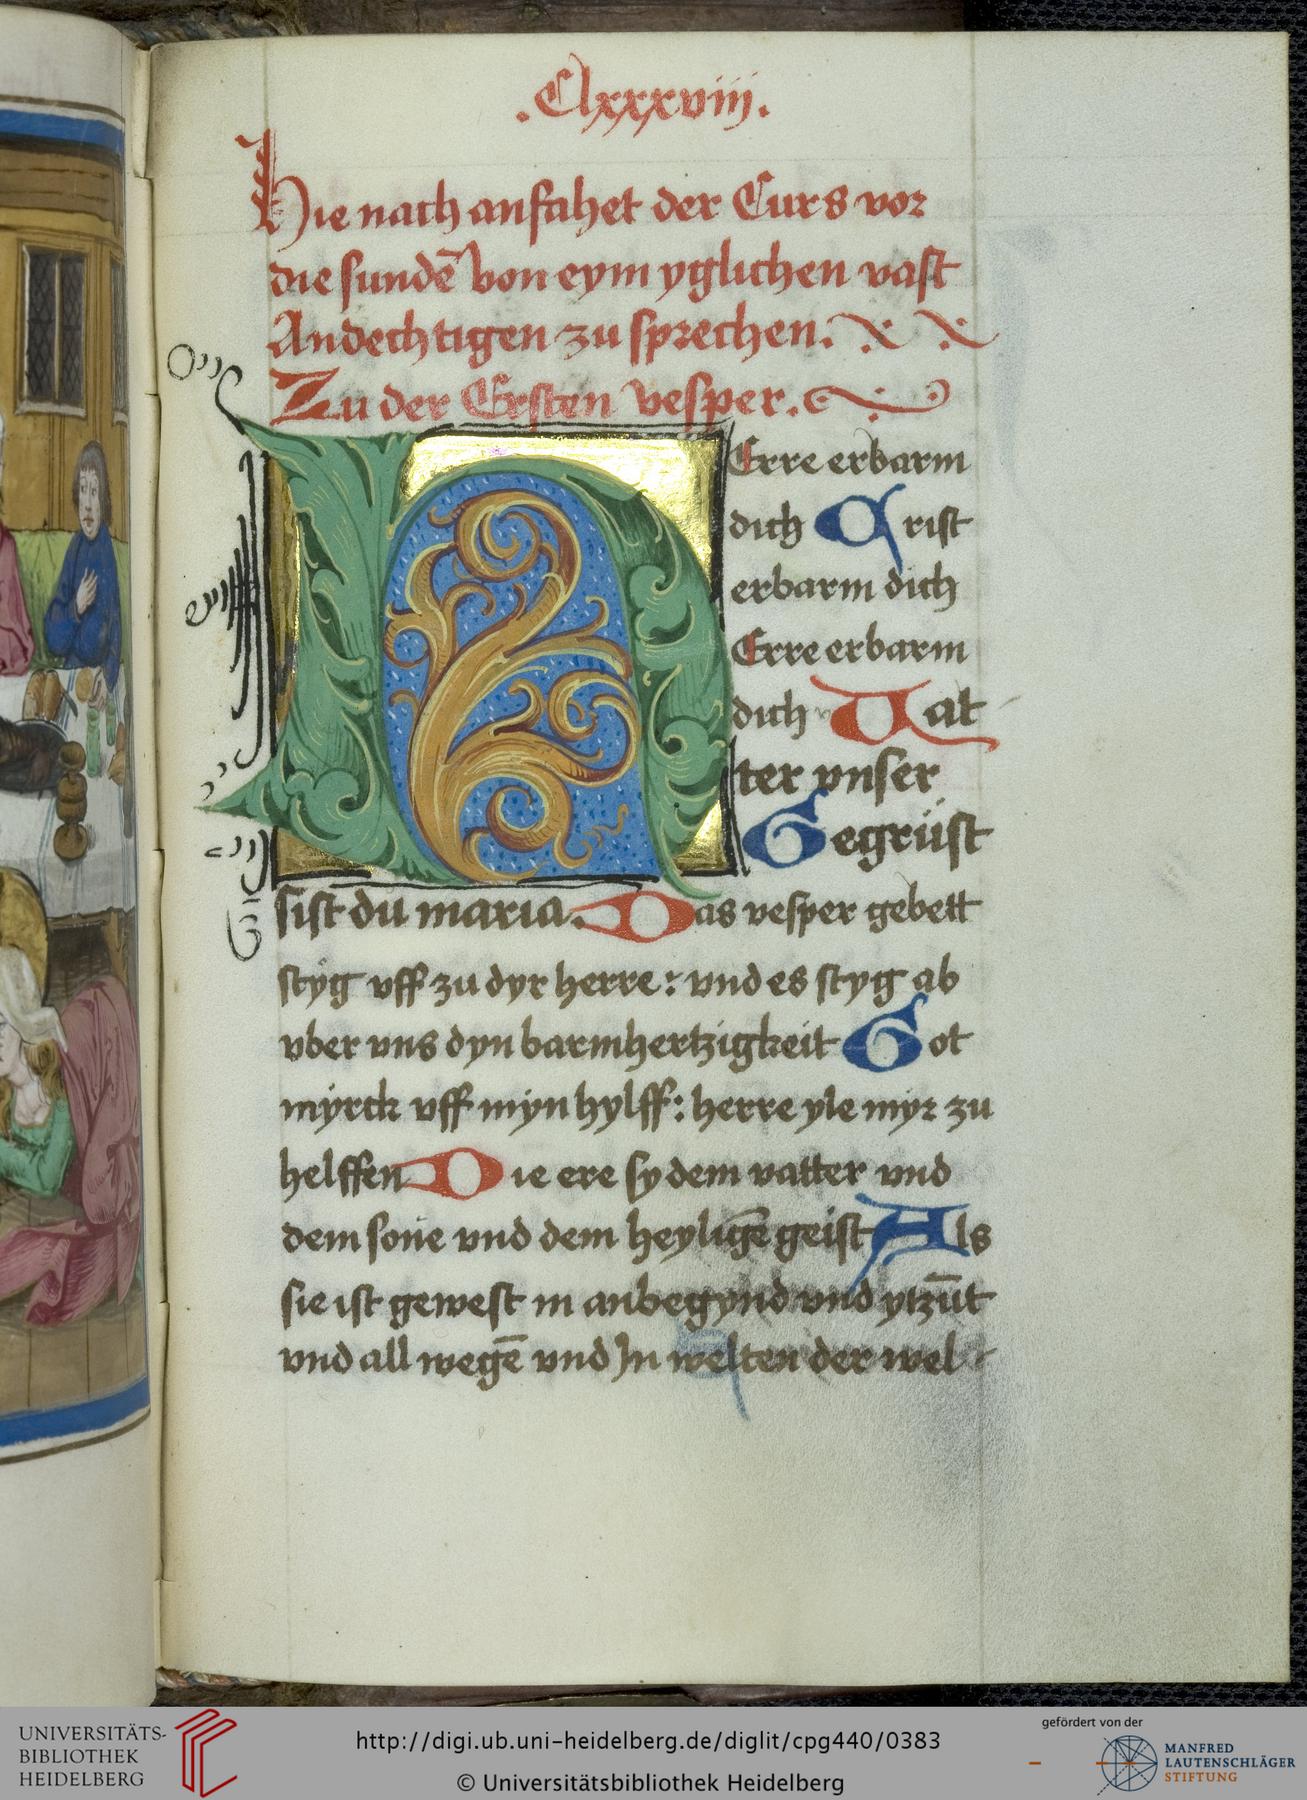 .Clxxxviij.
Hie nach anfahet der Curs vor
die sundē von eym yglichen vast
Andechtigen zu sprechen.
Zu der Ersten vesper.
HErre erbarm
dich Crist
erbarm dich
Erre erbarm
dich Vat
ter vnser
Gegrüst
sist du maria. Das vesper gebett
styg vff zu dyr herre: vnd es styg ab
vber vns dyn barmhertzigkeit Got
myrck vff myn hylff: herre yle myr zu
helffen Die ere sy dem vatter vnd
dem sone vnd dem heyligē geist Als
sie ist gewest in anbegynd vnd ytzūt
vnd all wegē vnd In welten der wel-
UNIVERSITÄTS-
BIBLIOTHEK
HEIDELBERG
http://digi.ub.uni-heidelberg.de/diglit/cpg440/0383
© Universitätsbibliothek Heidelberg
gefördert von der
MANFRED
LAUTENSCHLÄGER
STIFTUNG